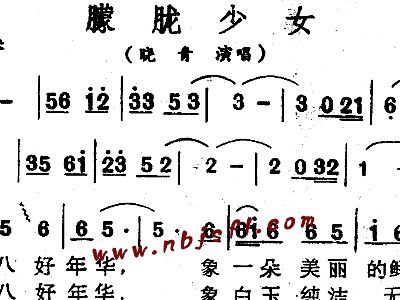 朦胧少女
(晓青 演唱)
- | 56 12 | 33 53 | 3 - | 3 021 | 6
| 35 61 | 23 52 | 2 - | 2 032 | 1 -
5 6 | 6 5· | 5· 6 | 61 6 65 | 1 6
八好年华, 象一朵美丽的鲜
八好年华, 象白玉纯洁无
www.nbjssk.com